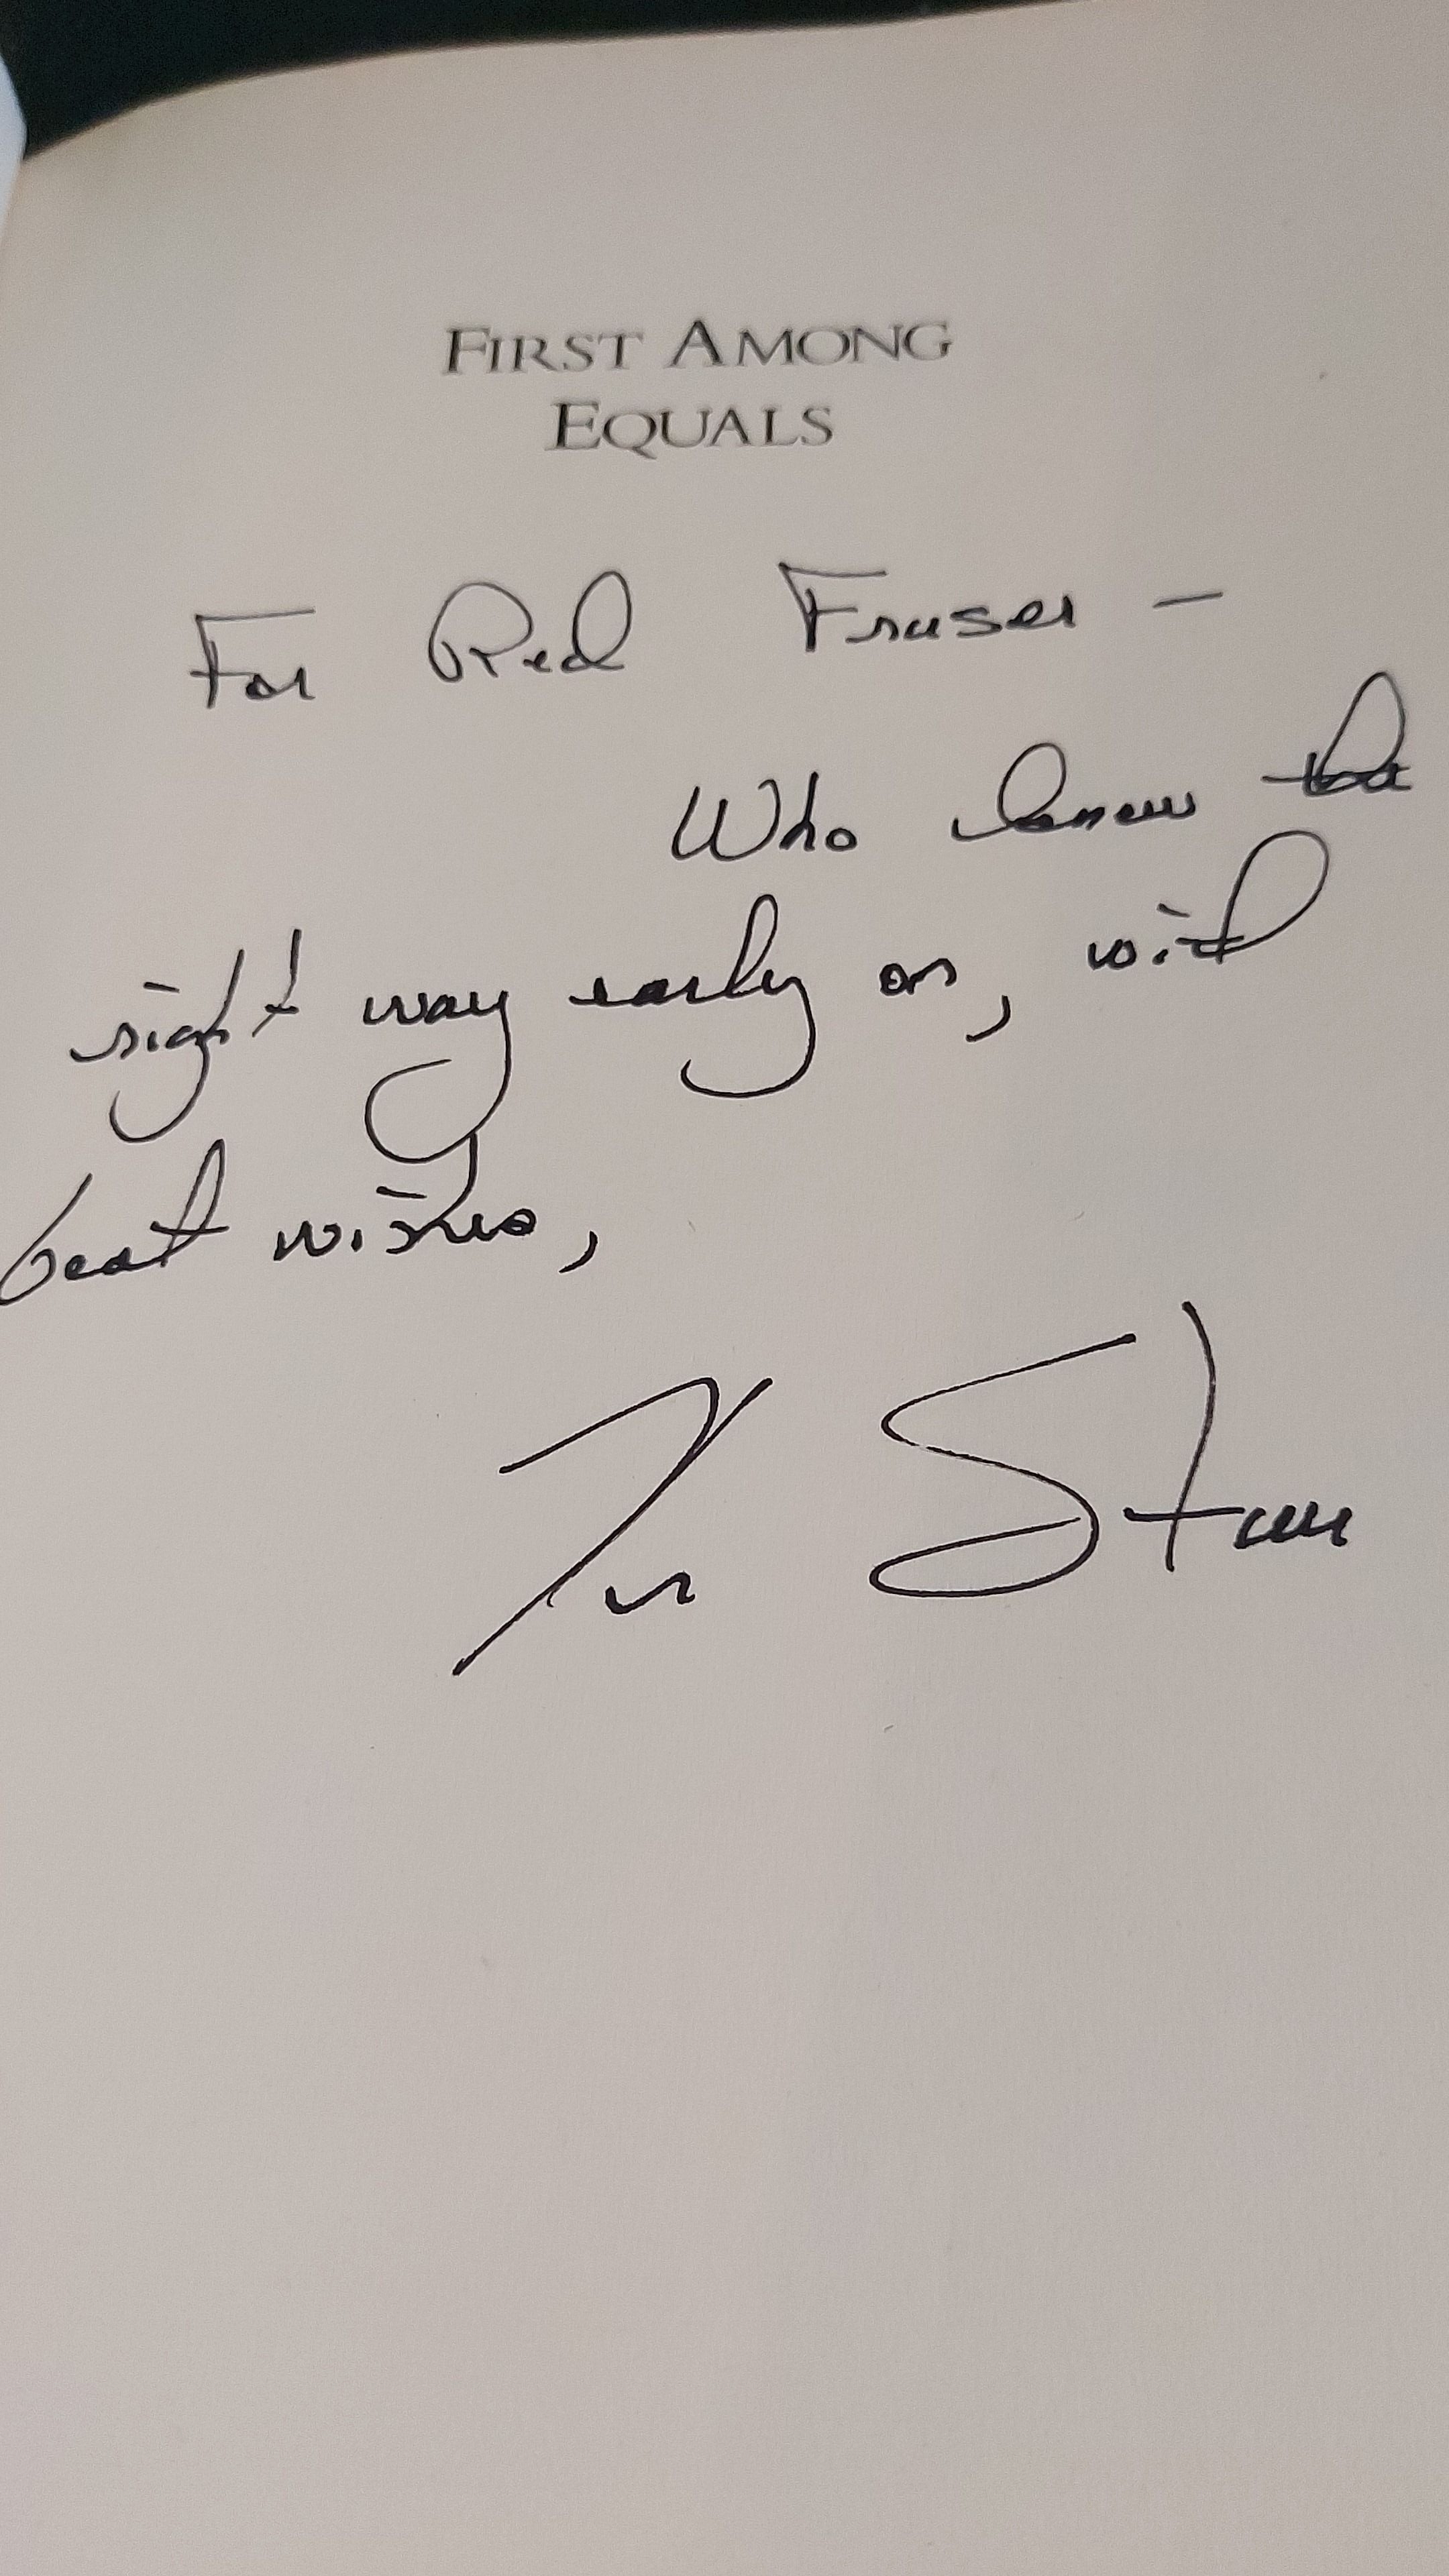 FIRST AMONG
EQUALS
For Red Fraser –
Who knew the
right way early on, with
best wishes,
Ken Starr